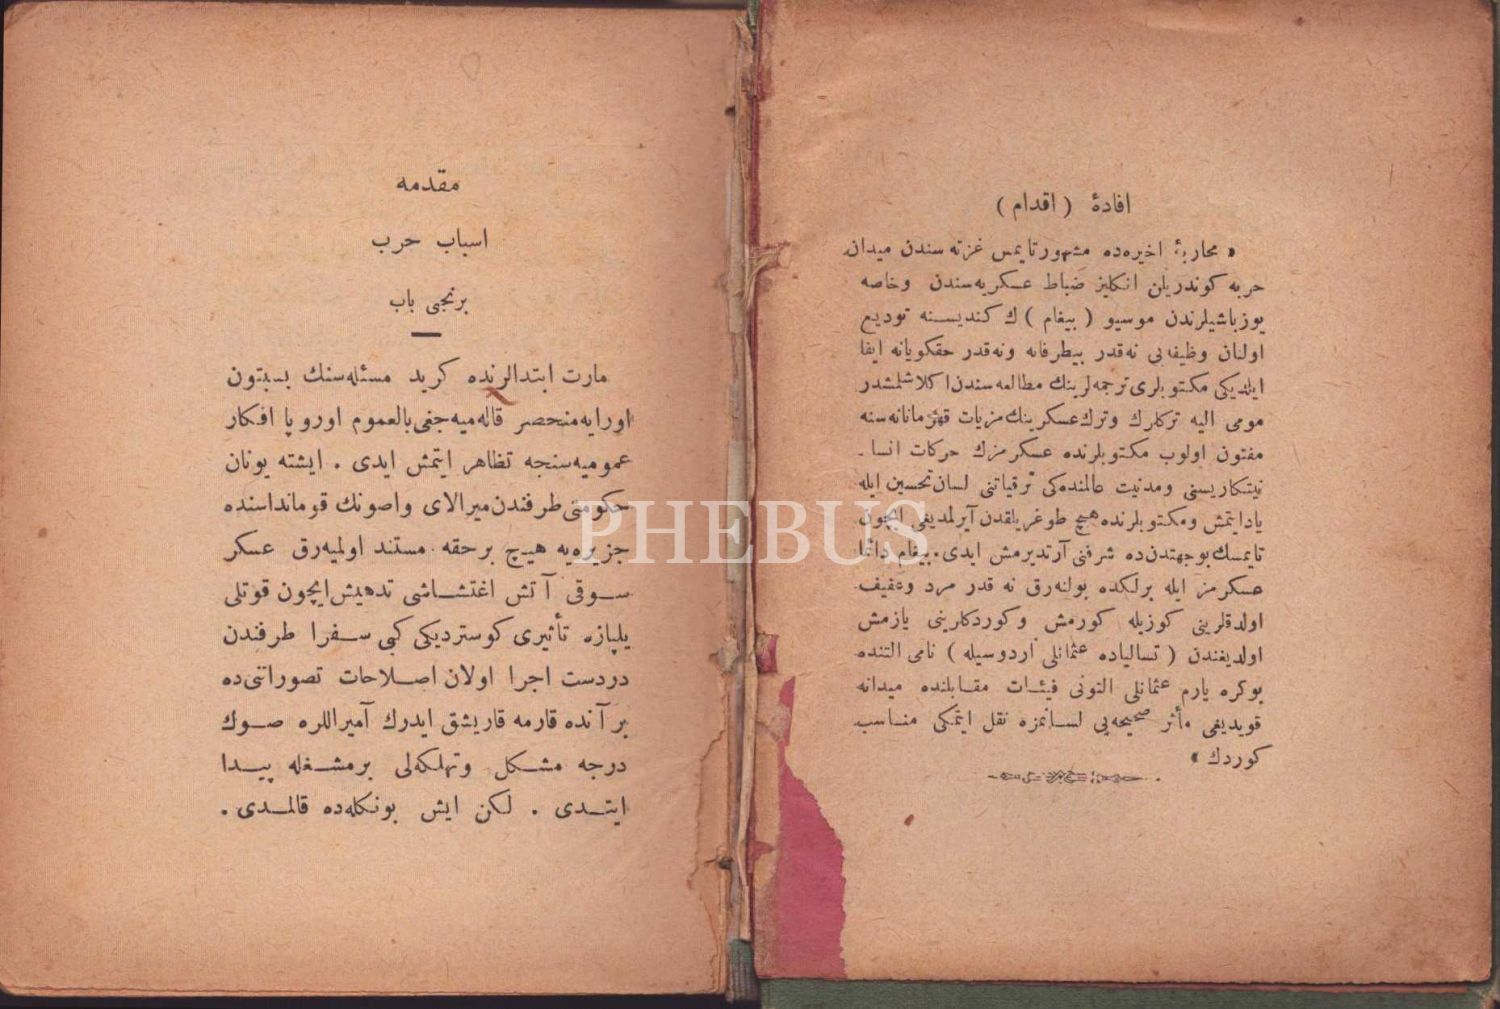 افادۀ ( اقدام )
« محاربۀ اخیره‌ده مشهور تایمس غزته سندن میدان
حربه کوندریلن انکلیز ضباط عسکریه‌سندن وخاصه
یوزباشیلرندن موسیو ( بیغام ) ك کندیسنه تودیع
اولنان وظیفه‌یی نه‌قدر بیطرفانه ونه‌قدر حقکویانه ایفا
ایلدیکی مکتوبلری ترجمه‌لرینك مطالعه سندن اکلاشلمشدر
مومی الیه ترکلرك وترك عسکرینك مزیات قهرمانانه‌سنه
مفتون اولوب مکتوبلرنده عسکرمزك حرکات انسا ـ
نیتکاریسنی ومدنیت عالمنده‌کی ترقیاتنی لسان تحسین ایله
یادایتمش ومکتوبلرنده هیچ طوغریلقدن آیرلمدیغی ایچون
تایمسك بوجهتدن ده شرفنی آرتدیرمش ایدی. بیغام دائما
عسکرمز ایله برلکده بولنه‌رق نه قدر مرد وعفیف
اولدقلرینی کوزیله کورمش وکوردکلرینی یازمش
اولدیغندن ( تسالیاده عثمانلی اردوسیله ) نامی التنده
بوکره یارم عثمانلی التونی فیئات مقابلنده میدانه
قویدیغی مأثر صحیحه‌یی لسانمزه نقل ایتمکی مناسب
کوردك »
مقدمه
اسباب حرب
برنجی باب
مارت ابتدالرنده کرید مسئله‌سنك بسبتون
اورایه منحصر قاله‌میه‌جغی بالعموم اوروپا افکار
عمومیه‌سنجه تظاهر ایتمش ایدی . ایشته یونان
حکومتی طرفندن میرالای واصونك قومانداسنده
جزیره‌یه هیچ برحقه مستند اولمیه‌رق عسکر
سوقی آتش اغتشاشی تدهیش ایچون قوتلی
یلپازه تأثیری کوستردیکی کبی سفرا طرفندن
دردست اجرا اولان اصلاحات تصوراتنی‌ده
بر آنده قارمه قاریشق ایدرك آمیراللره صوك
درجه مشکل وتهلکه‌لی برمشغله پیدا
ایتدی . لکن ایش بونکله‌ده قالمدی .
PHEBUS